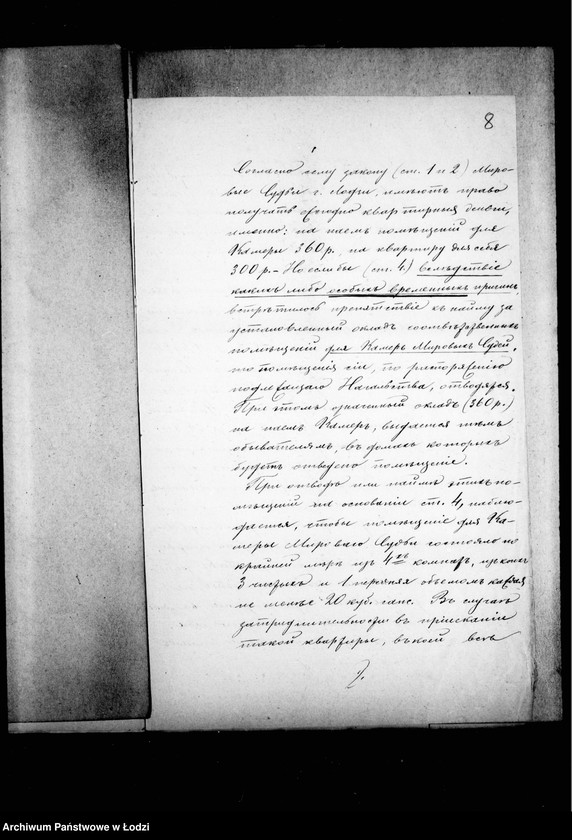 8
Согласно сему закону (ст. 1 и 2) Миро-
вые Судьи г. Лодзи, имеютъ право
получать ежегодно квартирныя деньги,
именно: на наемъ помѣщеній для
Камеры 360 р., на квартиру для себя
300 р. – Но если бы (ст. 4) вслѣдствіе
какихъ либо особыхъ временныхъ причинъ
встрѣтилось препятствіе къ найму за
установленный окладъ соотвѣтственныхъ
помѣщеній для Камеръ Мировыхъ Судей,
то помѣщенія сіи, по распоряженію
подлежащаго Начальства, отводятся.
При томъ означенный окладъ (360 р.)
на наемъ Камеръ, выдается тѣмъ
обывателямъ, въ домахъ которыхъ
будетъ отведено помѣщеніе.
При отводѣ или наймѣ этихъ по-
мѣщеній на основаніи ст. 4, наблю-
дается, чтобы помѣщеніе для Ка-
меры Мироваго Судьи состояло по
крайней мѣрѣ изъ 4хъ комнатъ, изъ коихъ
3 чистыхъ и 1 передняя объемомъ каждая
не менѣе 20 куб. саж. Въ случаѣ
затруднительности въ пріисканіи
такой квартиры, въ коей всѣ
Archiwum Państwowe w Łodzi